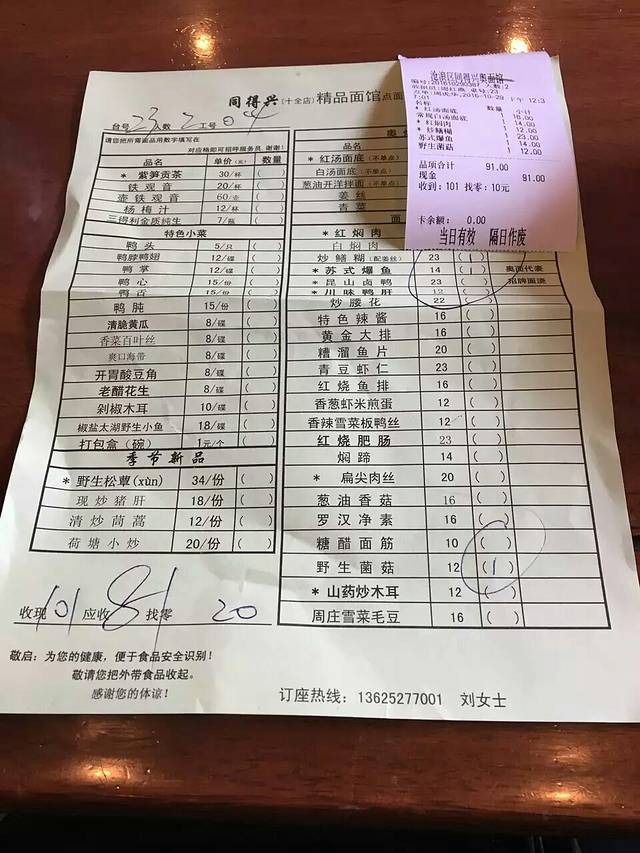 同得兴 [十全店] 精品面馆点面
台号 23 人数 2 工号 04
请您把所需面品用数字填写在
对应格即可招呼服务员,谢谢!
品名 单价/元 数量
* 紫笋贡茶 30/杯 ( )
铁观音 20/杯 ( )
壶铁观音 60/壶 ( )
杨梅汁 12/杯 ( )
三得利金质纯生 7/瓶 ( )
特色小菜
鸭头 5/只 ( )
鸭脖鸭翅 12/碟 ( )
鸭掌 12/碟 ( )
鸭心 15/份 ( )
鸭百 15/份 ( )
鸭肫 15/份 ( )
清脆黄瓜 8/碟 ( )
香菜百叶丝 8/碟 ( )
爽口海带 8/碟 ( )
开胃酸豆角 8/碟 ( )
老醋花生 8/碟 ( )
剁椒木耳 10/碟 ( )
椒盐太湖野生小鱼 18/碟 ( )
打包盒(碗) 1元/个 ( )
季节新品
* 野生松蕈(xùn) 34/份 ( )
现炒猪肝 18/份 ( )
清炒茼蒿 12/份 ( )
荷塘小炒 20/份 ( )
收现 101 应收 81 找零 20
敬启:为您的健康,便于食品安全识别!
敬请您把外带食品收起。
感谢您的体谅!
品名
* 红汤面底(不单点)
白汤面底(不单点)
葱油开洋拌面
姜丝
青菜
面
* 红焖肉
白焖肉
炒鳝糊(配姜丝) 23 (1)
* 苏式爆鱼 14 (1) 奥面代表
* 昆山卤鸭 23 ( ) 招牌面浇
* 川味鸭肝 12 ( )
炒腰花 22 ( )
特色辣酱 16 ( )
黄金大排 16 ( )
糟溜鱼片 20 ( )
青豆虾仁 23 ( )
红烧鱼排 16 ( )
香葱虾米煎蛋 12 ( )
香辣雪菜板鸭丝 12 ( )
红烧肥肠 23 ( )
焖蹄 14 ( )
* 扁尖肉丝 20 ( )
葱油香菇 16 ( )
罗汉净素 16 ( )
糖醋面筋 10 ( )
野生菌菇 12 (1)
* 山药炒木耳 12 ( )
周庄雪菜毛豆 16 ( )
订座热线:13625277001 刘女士
沧浪区同得兴奥面馆
编号:20161029038 人数:2
桌号:23
2016-10-29 下午 12:3
7:01
名称 数量 小计
* 红汤面底 1 16.00
常规白汤面底 1 8.00
* 红焖肉 1 14.00
* 炒鳝糊 1 23.00
苏式爆鱼 1 14.00
野生菌菇 1 12.00
品项合计 91.00
现金 91.00
收到:101 找零:10元
卡余额: 0.00
当日有效 隔日作废